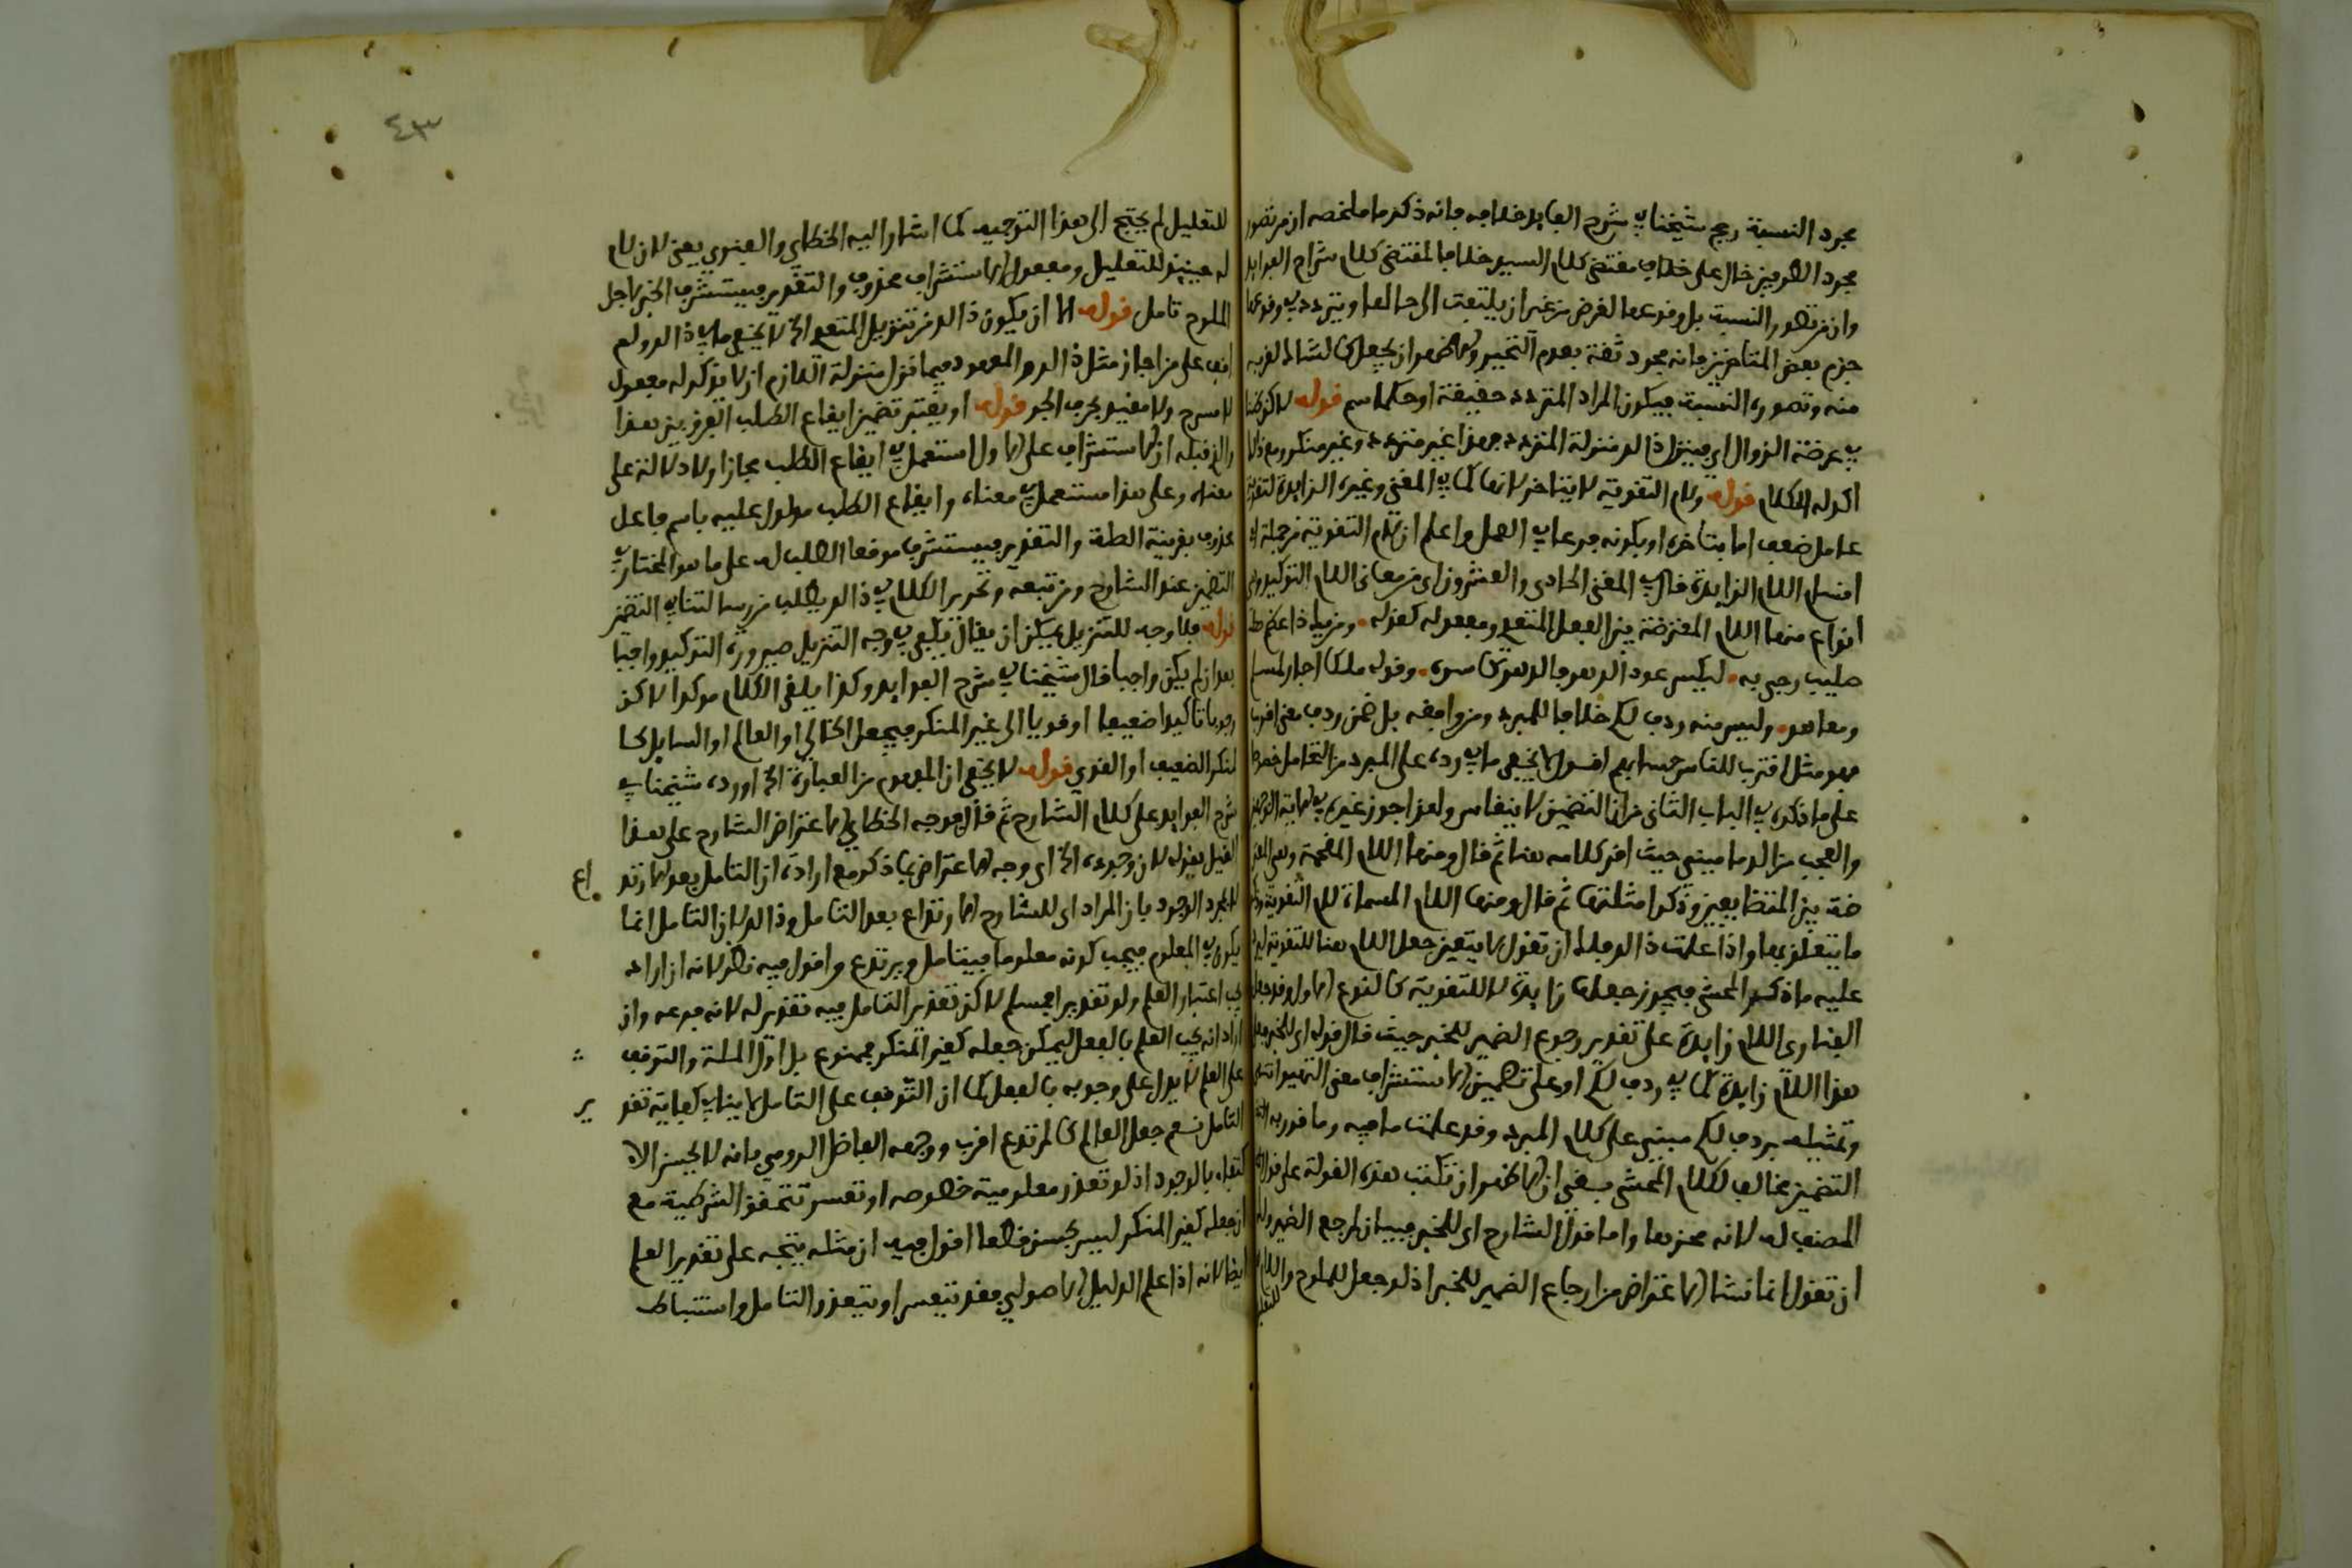 مجرد النسبة رجح شيخنا في شرح الفوايد خلافه فانه ذكر ما ملخصه ان من تصور
مجرد الطرفين خال على خلاف مقتضى كلام السيد خلافا لمقتضى كلام شراح الفوايد
وان من تصور النسبة بل وقوعها لغرض من غير ان يلتفت الى حالها ويتردد في وقوعها
جزم بعض المتاخرين بانه مجرد ثقة بعدم التحير والاظهر ان يجعل كالشاك لقربه
منه وتصوره النسبة فيكون المراد المتردد حقيقة او حكما سم قوله لاكونها
في عرضة الزوال اي فينزل ذالك منزلة المتردد فهذا غير متردد وغير منكر ومع ذالك
اكد له الكلام قوله ولام التقوية لا يتاخر لانها كما في المغني وغيره الزايدة لتقوية
عامل ضعف اما بتاخره او بكونه فرعا في العمل واعلم ان لام التقوية من جملة
اقسام اللام الزايدة قال في المغني الحادي والعشرون اي من معاني اللام التوكيد وهي
انواع منها اللام المعترضة بين الفعل المتعدي ومفعوله كقوله ومن يك ذا عظم
صليب رجى به ليكسر عود الدهر فالدهر كاسره وقوله ملكا اجار لمسلم
ومعاهد وليس منه ردف لكم خلافا للمبرد ومن وافقه بل ضمن ردف معنى اقترب
فهو مثل اقترب للناس حسابهم اقول لا يخفى ما في رده على المبرد من التحامل
على ما ذكره في الباب الثاني من ان التضمين لا ينقاس ولهذا جوز غيره في الاية الوجهين
والعجب من الدماميني حيث اقر كلامه هنا ثم قال ومنها اللام المقحمة وهي المعتر
ضة بين المتضايفين وذكر امثلتها ثم قال ومنها اللام المسماة لام التقوية
ما يتعلق بها واذا علمت ذالك فلك ان تقول لا يتعين جعل اللام هنا للتقوية
عليه ما ذكره المحشي فيجوز جعلها زايدة لا للتقوية كالنوع الاول وقد جعل
الفناري اللام زايدة على تقدير رجوع الضمير للخبر حيث قال قوله اي للخبر
هذا اللام زايدة كما في ردف لكم او على تضمين الاستشراف معنى
وتمثيله بردف لكم مبني على كلام المبرد وقد علمت ما فيه وما قدر به
التضمين مخالف لكلام المحشي بقي ان الاظهر ان تكتب هذه القولة على قول
المصنف له لانه محزها واما قول الشارح اي للخبر فبيان لمرجع الضمير
ان تقول انما نشا الاعتراض من ارجاع الضمير للخبر اذ لو جعل للملوح واللام
للتعليل
٤٣
للتعليل لم يحتج الى هذا التوجيه كما اشار اليه الخطاي والفنري يعني لان لام
له حينئذ للتعليل ومفعول الاستشراف محذوف والتقدير فيستشرف الخبر لاجل
الملوح تامل قوله الا ان يكون ذالك من تنزيل المتعدي الخ لا يخفى ما في ذالك ولم
اقف على من اجاز مثل ذالك والمعهود فيما نزل منزلة اللازم ان لا يذكر له مفعول
لا صريح ولا مقيد بحرف الجر قوله او يعتبر تضمين ايقاع الطلب الفرق بين هذا
والذي قبله ان الاستشراف على الاول استعمل في ايقاع الطلب مجازا ولا دلالة على
معناه وعلى هذا مستعمل في معناه وايقاع الطلب مدلول عليه باسم فاعل
محذوف بقرينة الصلة والتقدير فيستشرف موقعا الطلب له على ما هو المختار في
التضمين عند الشارح ومن تبعه وتحرير الكلام في ذالك يطلب من رسالتنا في التضمين
قوله فلا وجه للتنزيل يمكن ان يقال يكفي في وجه التنزيل صيرورة التوكيد واجبا
بعد ان لم يكن واجبا قال شيخنا في شرح الفوايد وكذا يلقى الكلام موكدا لاكن
وجوبا تاكيدا ضعيفا او قويا الى غير المنكر فيجعل الخالي او العالم او السايل كا
لمنكر الضعيف او القوي قوله لا يخفى ان المفهوم من العبارة الخ اورده شيخنا في
شرح الفوايد على كلام الشارح ثم قال ووجه الخطاي الاعتراض الشارح على هذا
القيل بقوله لان وجوده الخ اي وجه الاعتراض بما ذكر مع ارادة ان التامل يعد الارتد
اع
لا مجرد الوجود بان المراد اي للشارح الارتداع بعد التامل وذالك لان التامل انما
يكون في المعلوم فيجب كونه معلوما فيتامل ويرتدع واقول فيه نظر لانه ان اراد
يجب اعتبار العلم ولو تقديرا فمسلم لاكن تقدير التامل فيه تقدير له لانه فرعه وان
اراد انه يجب العلم بالفعل ليمكن جعله كغير المنكر فممنوع بل اول المسلة والتوقف
على العلم لا يدل على وجوبه بالفعل كما ان التوقف على التامل لا ينافي كفاية تقد
ير
التامل نعم جعل العالم كالمرتدع اقرب ووجهه الفاضل الرومي بانه لا يحسن الا
كتفاء بالوجود اذ لو تعذر معلومية خصوصه او تعسر تتحقق الشرطية مع
ان جعله كغير المنكر ليس بحسن قطعا اقول فيه ان مثله يتجه على تقدير العلم
ايضا لانه اذا علم الدليل الاصولي فقد يتعسر او يتعذر التامل واستنباط